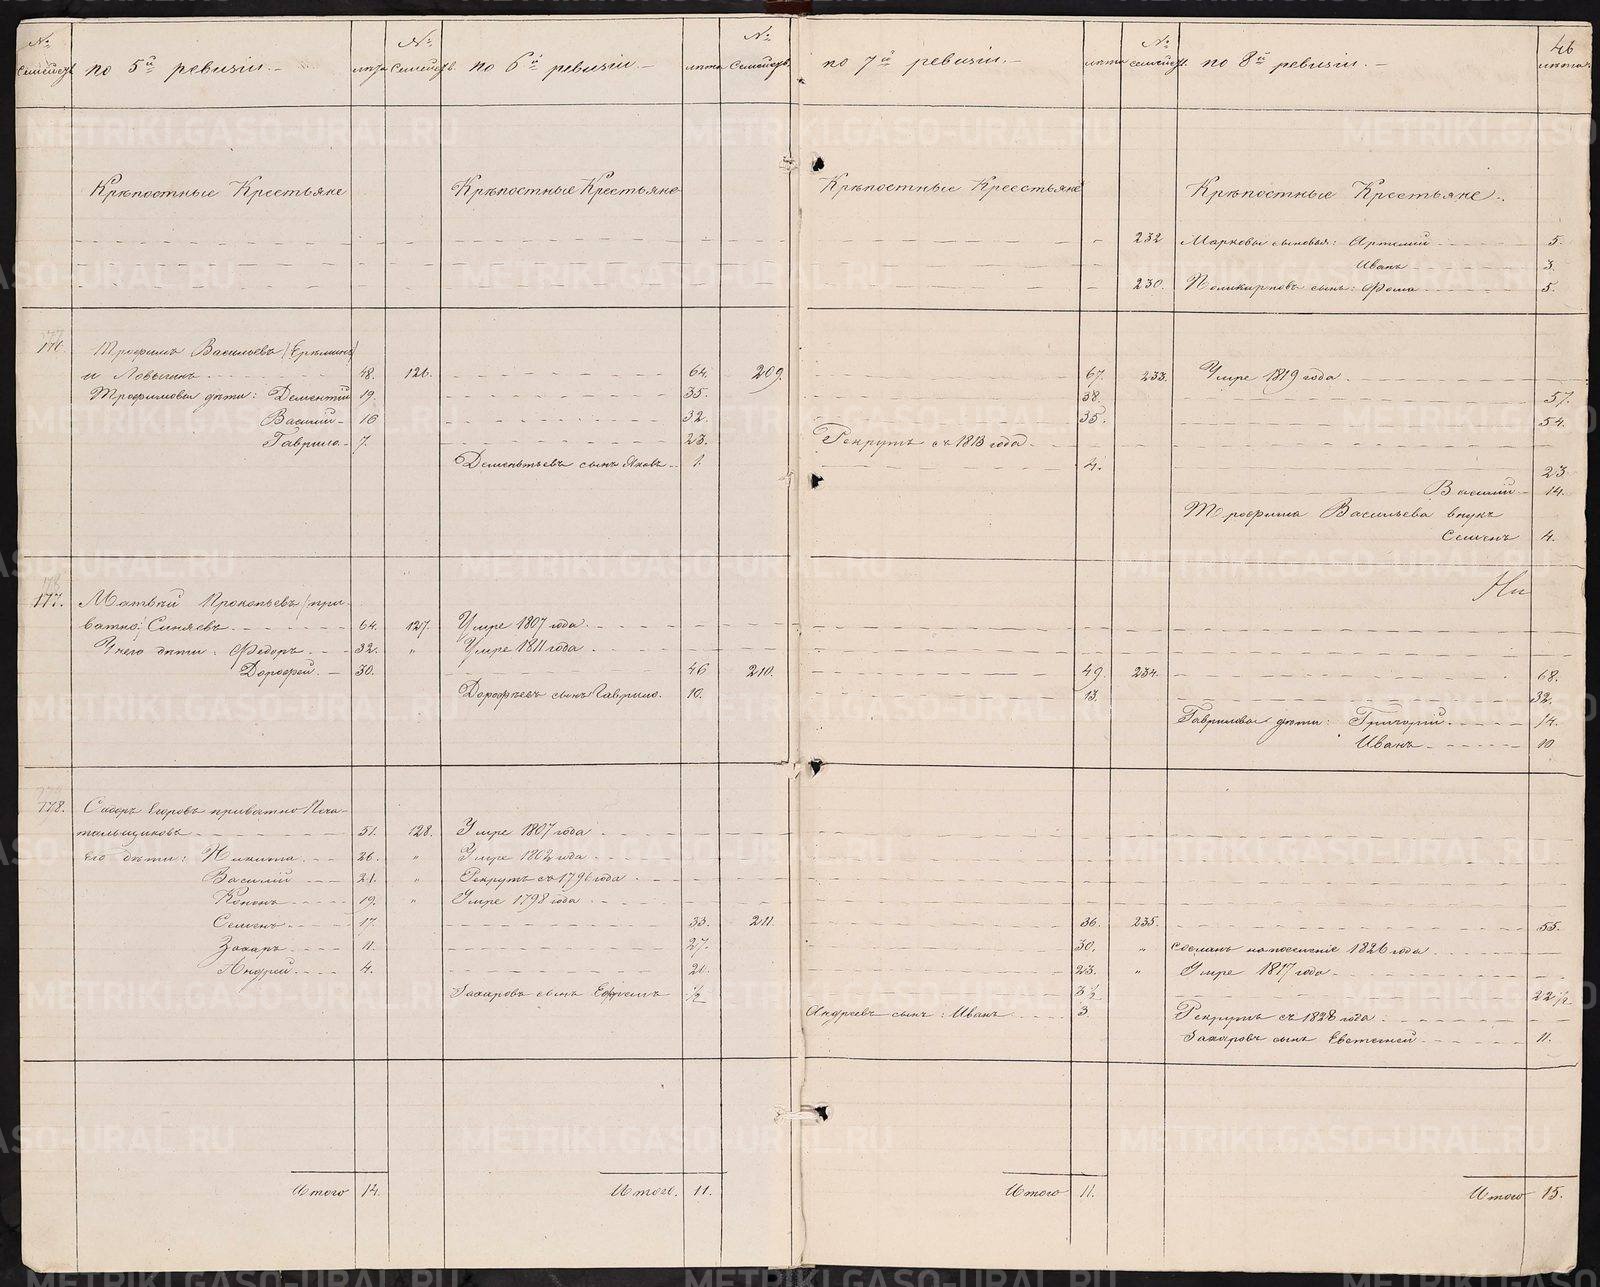 46
№ семействъ по 5й ревизiи. лѣта № Семейств. по 6й ревизiи лѣта № Семейств. по 7й ревизiи. лѣта № семейств. по 8й ревизiи. лѣта
Крѣпостные Крестьяне Крѣпостные Крестьяне Крѣпостные Крестьяне Крѣпостные Крестьяне.
232 Марковы сыновья: Артемiй 5.
Иванъ 3.
230. Поликарповъ сынъ: Фома 5.
176. Трофимъ Васильевъ
48. 126. 64. 209. 67. 233. Умре 1819 года.
Трофимовы дѣти: Дементiй 19. 35. 38. 57.
Василiй 16 32. 35. 54.
Гаврило 7. 23. Рекрутъ съ 1813 года
Дементьевъ сынъ Яковъ 1. 4. 23
Василiй 14.
Трофима Васильева внукъ
Семенъ 4.
177. Матвѣй Прокопьевъ /при-
ватно: Синяевъ 64. 127. Умре 1807 года.
У него дѣти: Федоръ 32. " Умре 1811 года.
Дорофей 30. 46 210. 49. 234. 68.
Дорофѣевъ сынъ Гаврило. 10. 13. 32.
Гавриловы дѣти: Григорiй 14.
Иванъ 10
178. Сидоръ Егоровъ приватно
51. 128. Умре 1807 года
его дѣти: Никита 26. " Умре 1802 года
Василiй 21. " Рекрутъ съ 1796 года
Кононъ 19. " Умре 1798 года
Семенъ 17. 33. 211. 36. 235. 55.
Захаръ 11. 27. 30. " Сосланъ на поселенiе 1826 года
Андрей 4. 20. 23. " Умре 1817 года
Захаровъ сынъ Ефремъ 1/2 3 1/2 22 1/2
Андреевъ сынъ: Иванъ 3 Рекрутъ съ 1828 года
Захаровъ сынъ Евстегней 11.
Итого 14. Итого. 11. Итого 11. Итого 15.
METRIKI.GASO-URAL.RU